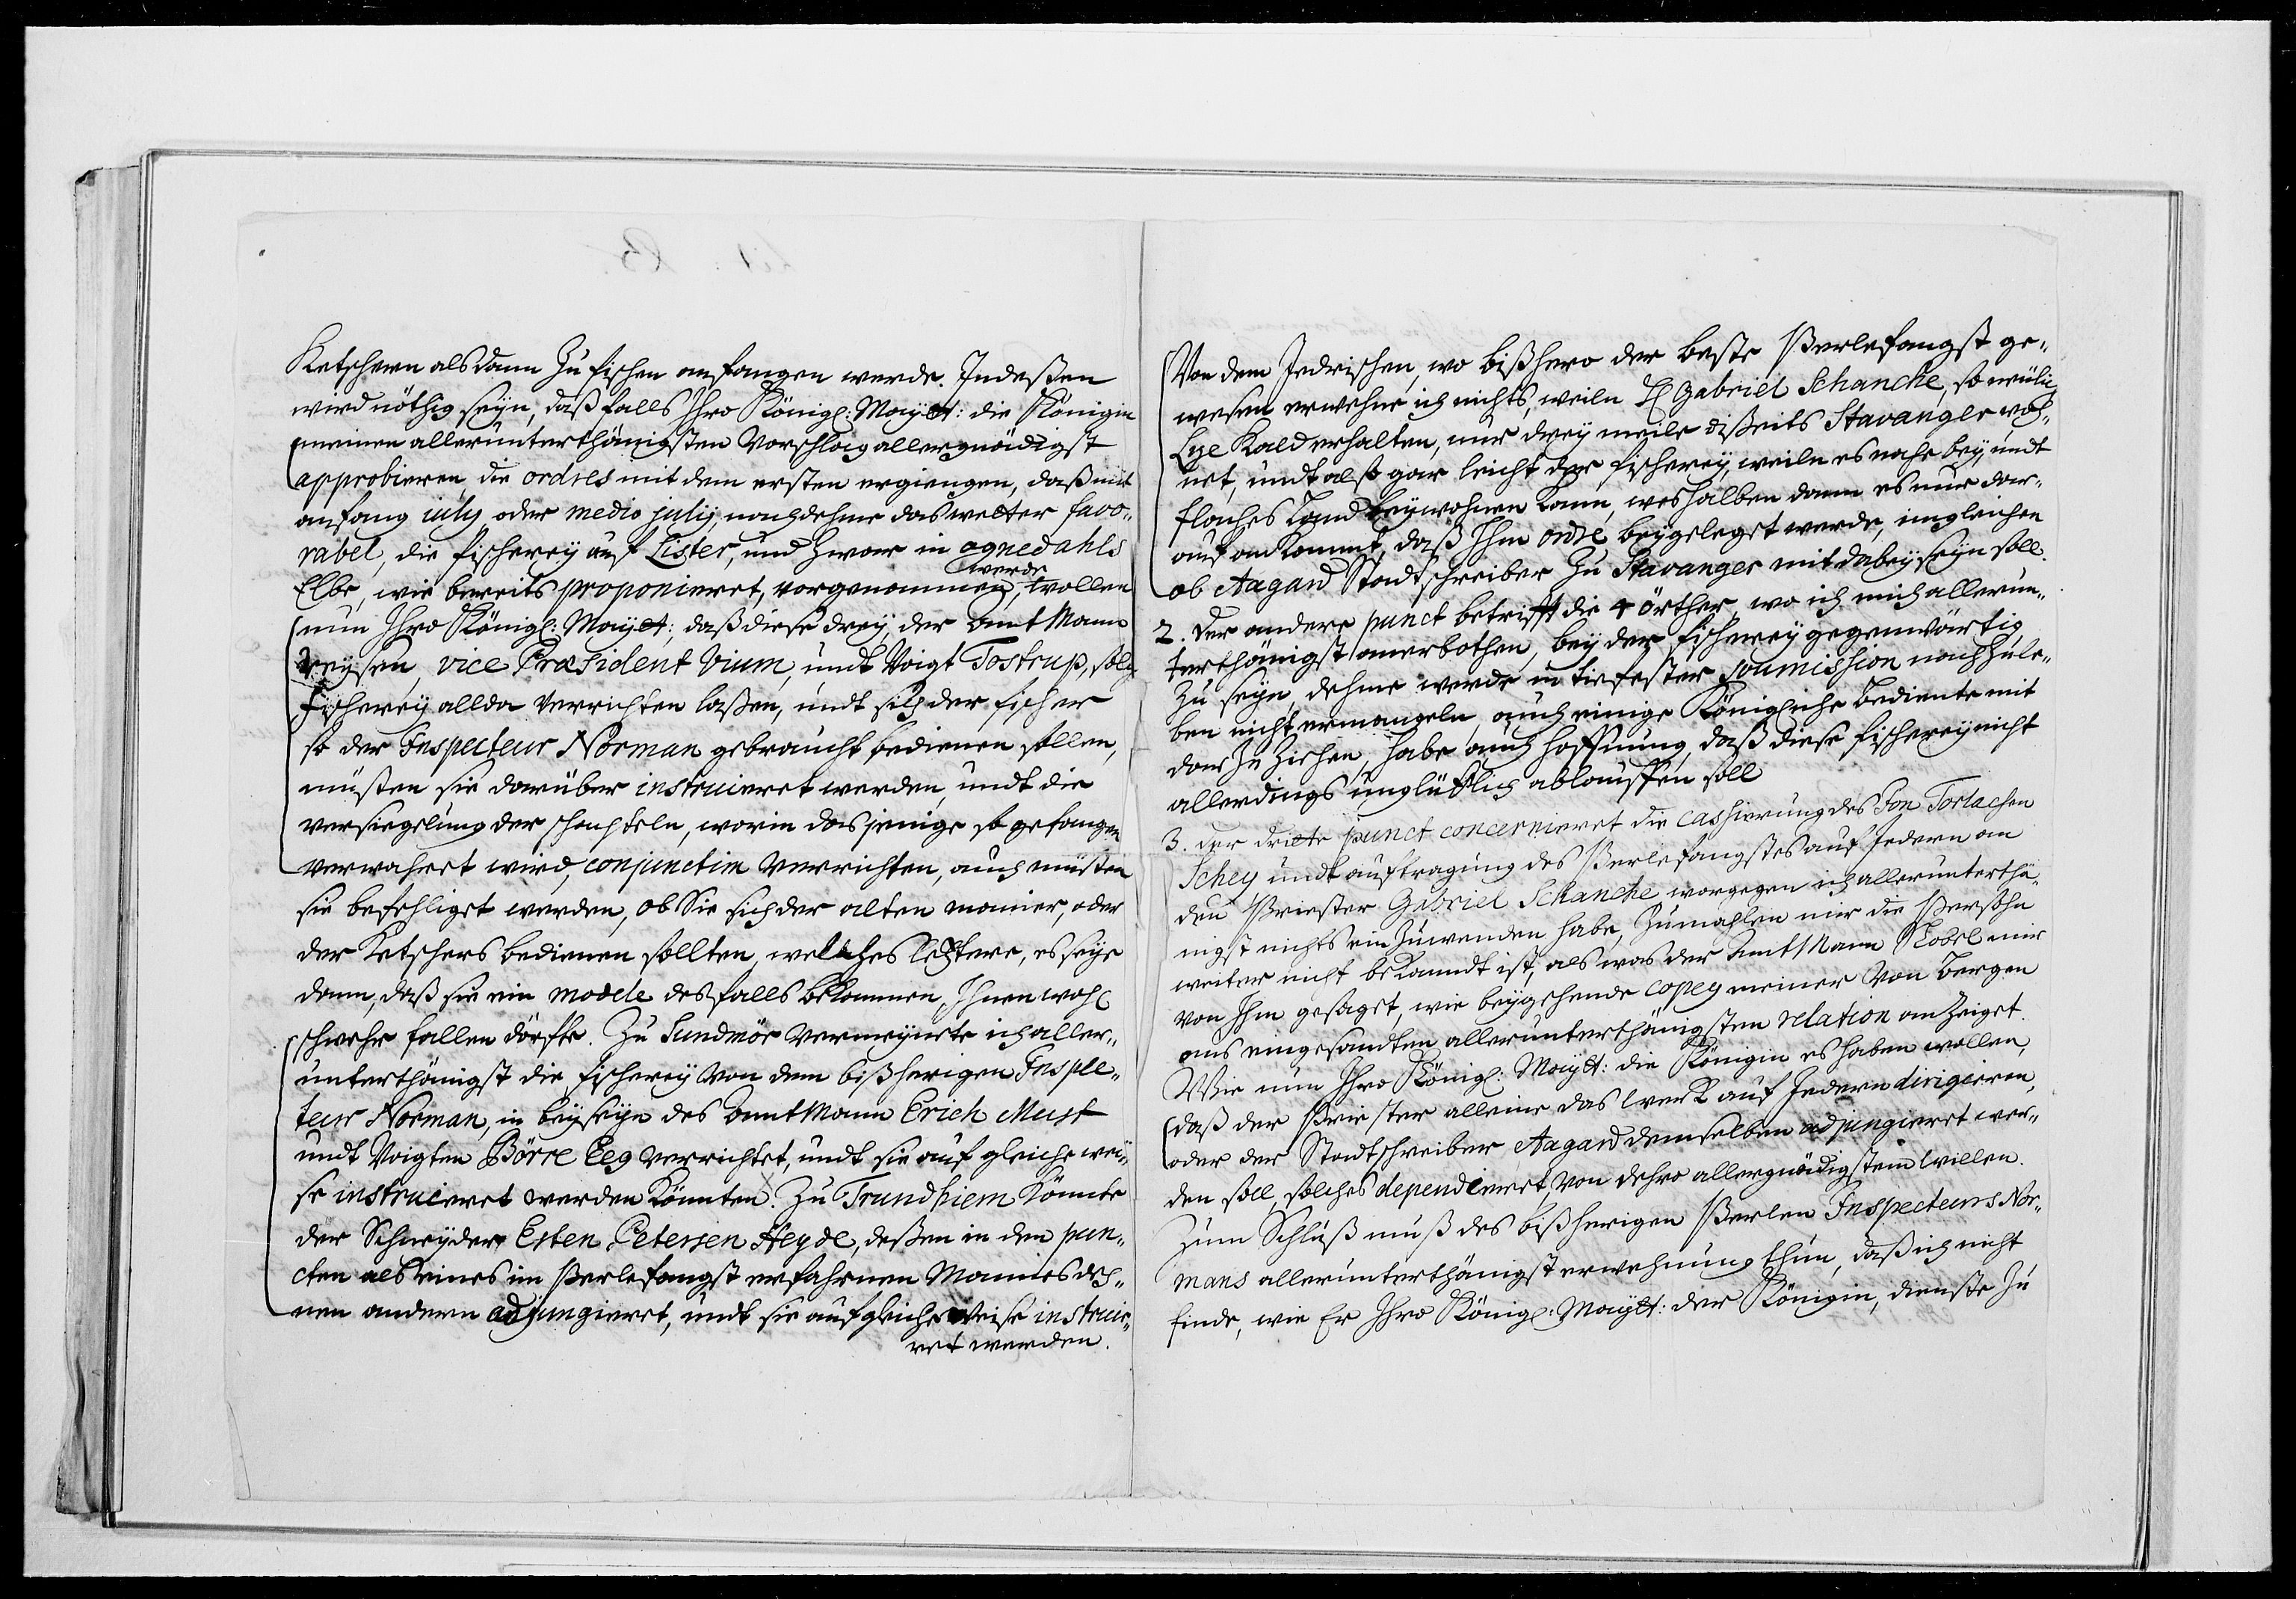 Ketschern alsdann zu fischen anfangen werde. Indeßen
wird nöthig seyn, daß falls Ihro Königl: Mayt: die Königin
meinen allerunterthänigsten Vorschlag allergnädigst
approbieren die ordres mit dem ersten ergiengen, daß mit
anfang iuly oder medio julij, nachdehme das wetter favo-
rabel, die fischerey auf Lister, und zwar in ognedahls
Elbe, wie bereits proponieret, vorgenommen werde, wollen
nun Ihro Königl: Mayt:, daß diese drey, der Amt Mann
Reusen, vice Præsident Vium, undt Voigt Tostrup, solche
fischerey allda verrichten laßen, undt sich der fischer
so der Inspecteur Norman gebraucht, bedienen sollen,
müsten sie darüber instruieret werden, undt die
versiegelung der schachteln, worin dasjenige so gefangen
verwahret wird, conjunctim verrichten, auch müsten
sie befehliget werden, ob Sie sich der alten manier, oder
der Ketschers bedienen sollten, welches letztere, es seye
dann, daß sie ein modele desfalls bekommen, Ihnen wohl
schwehr fallen dörffte. Zu Sundmör vermeynete ich aller-
unterthänigst die fischerey von dem bißherigen Inspec-
teur Norman, in beyseyn des Amt Mann Erich Must
undt Voigten Börre Eeg verrichtet, undt sie auf gleiche wei-
se instruieret werden könnten. Zu Trundhiem könnte
der Schneyder Esten Petersen Heyde, deßen in den pun-
cten als eines im Perlefangst erfahrnen Mannes de-
nen andern adjungieret, undt sie auf gleiche Weise instruie-
ret werden.
Von dem Jedrischen, wo bißhero der beste Perlefangst ge-
wesen erwehne ich nichts, weiln H Gabriel Schancke, so neulich
Lye Kald erhalten, nur drey meile disseits Stavanger woh-
net, undt also gar leicht der fischerey, weiln es nahe bey, undt
flaches Land beywohnen kann, weshalben dann es nur dar-
auf ankommt, daß Ihm ordre beygeleget werde, imgleichen
ob Aagard Stadtschreiber zu Stavanger mit dabey seyn soll.
2. Der andere punct betrifft die 4 örther, wo ich mich allerun-
terthänigst anerbothen, bey der fischerey gegenwärtig
zu seyn, dehme werde in tiefester soumission nachzule-
ben nicht ermangeln, auch einige Königliche bediente mit
dar zu ziehen, habe auch hoffnung, daß diese fischerey nicht
allerdings unglüklich ablauffen soll
3. Der dritte punct concernieret die cashierung des Jon Torlacsen
Schey undt auftragung des Perlefangstes auf Jedern an
den Priester Gabriel Schancke worgegen ich allerunterthä-
nigst nichts einzuwenden habe, zumahlen mir die Persohn
weiter nicht bekandt ist, als was der Amt Mann Nobel mir
von Ihm gesaget, wie beygehende copey meiner von Bergen
aus eingesandten allerunterthänigsten relation anzeiget.
Wie nun Ihro Königl: Mayt: die Königin es haben wollen,
daß der Priester alleine das werk auf Jedern dirigieren,
oder der Stadtschreiber Aagard demselben adjungieret wer-
den soll, solches dependieret von dehro allergnädigstem willen.
Zum Schluß muß des bißherigen Perlen Inspecteurs Nor-
mans allerunterthänigst erwehnung thun, daß ich nicht
finde, wie Er Ihro Königl: Mayt: der Königin, dienste zu